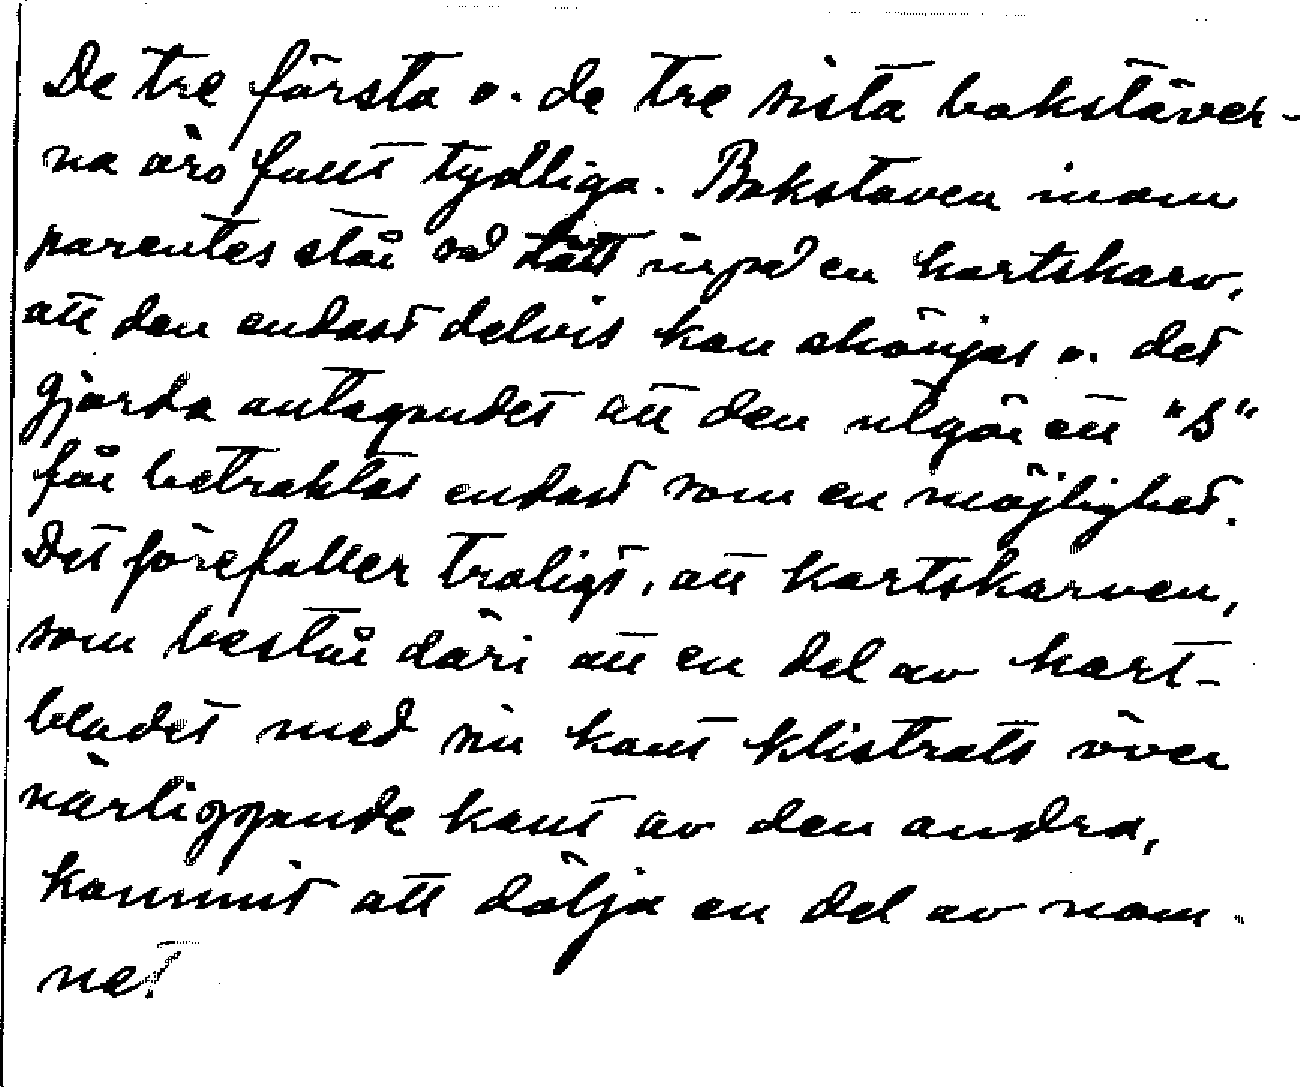 De tre första o. de tre sista bokstäver-
na äro fullt tydliga. Bokstaven inom
parentes står så tätt inpå en kartskarv,
att den endast delvis kan skönjas o. det
gjorda antagandet att den utgör ett "S"
får betraktas endast som en möjlighet.
Det förefaller troligt, att kartskarven,
som består däri att en del av kart-
bladet med sin kant klistrats över
närliggande kant av den andra,
kommit att dölja en del av nam-
net.